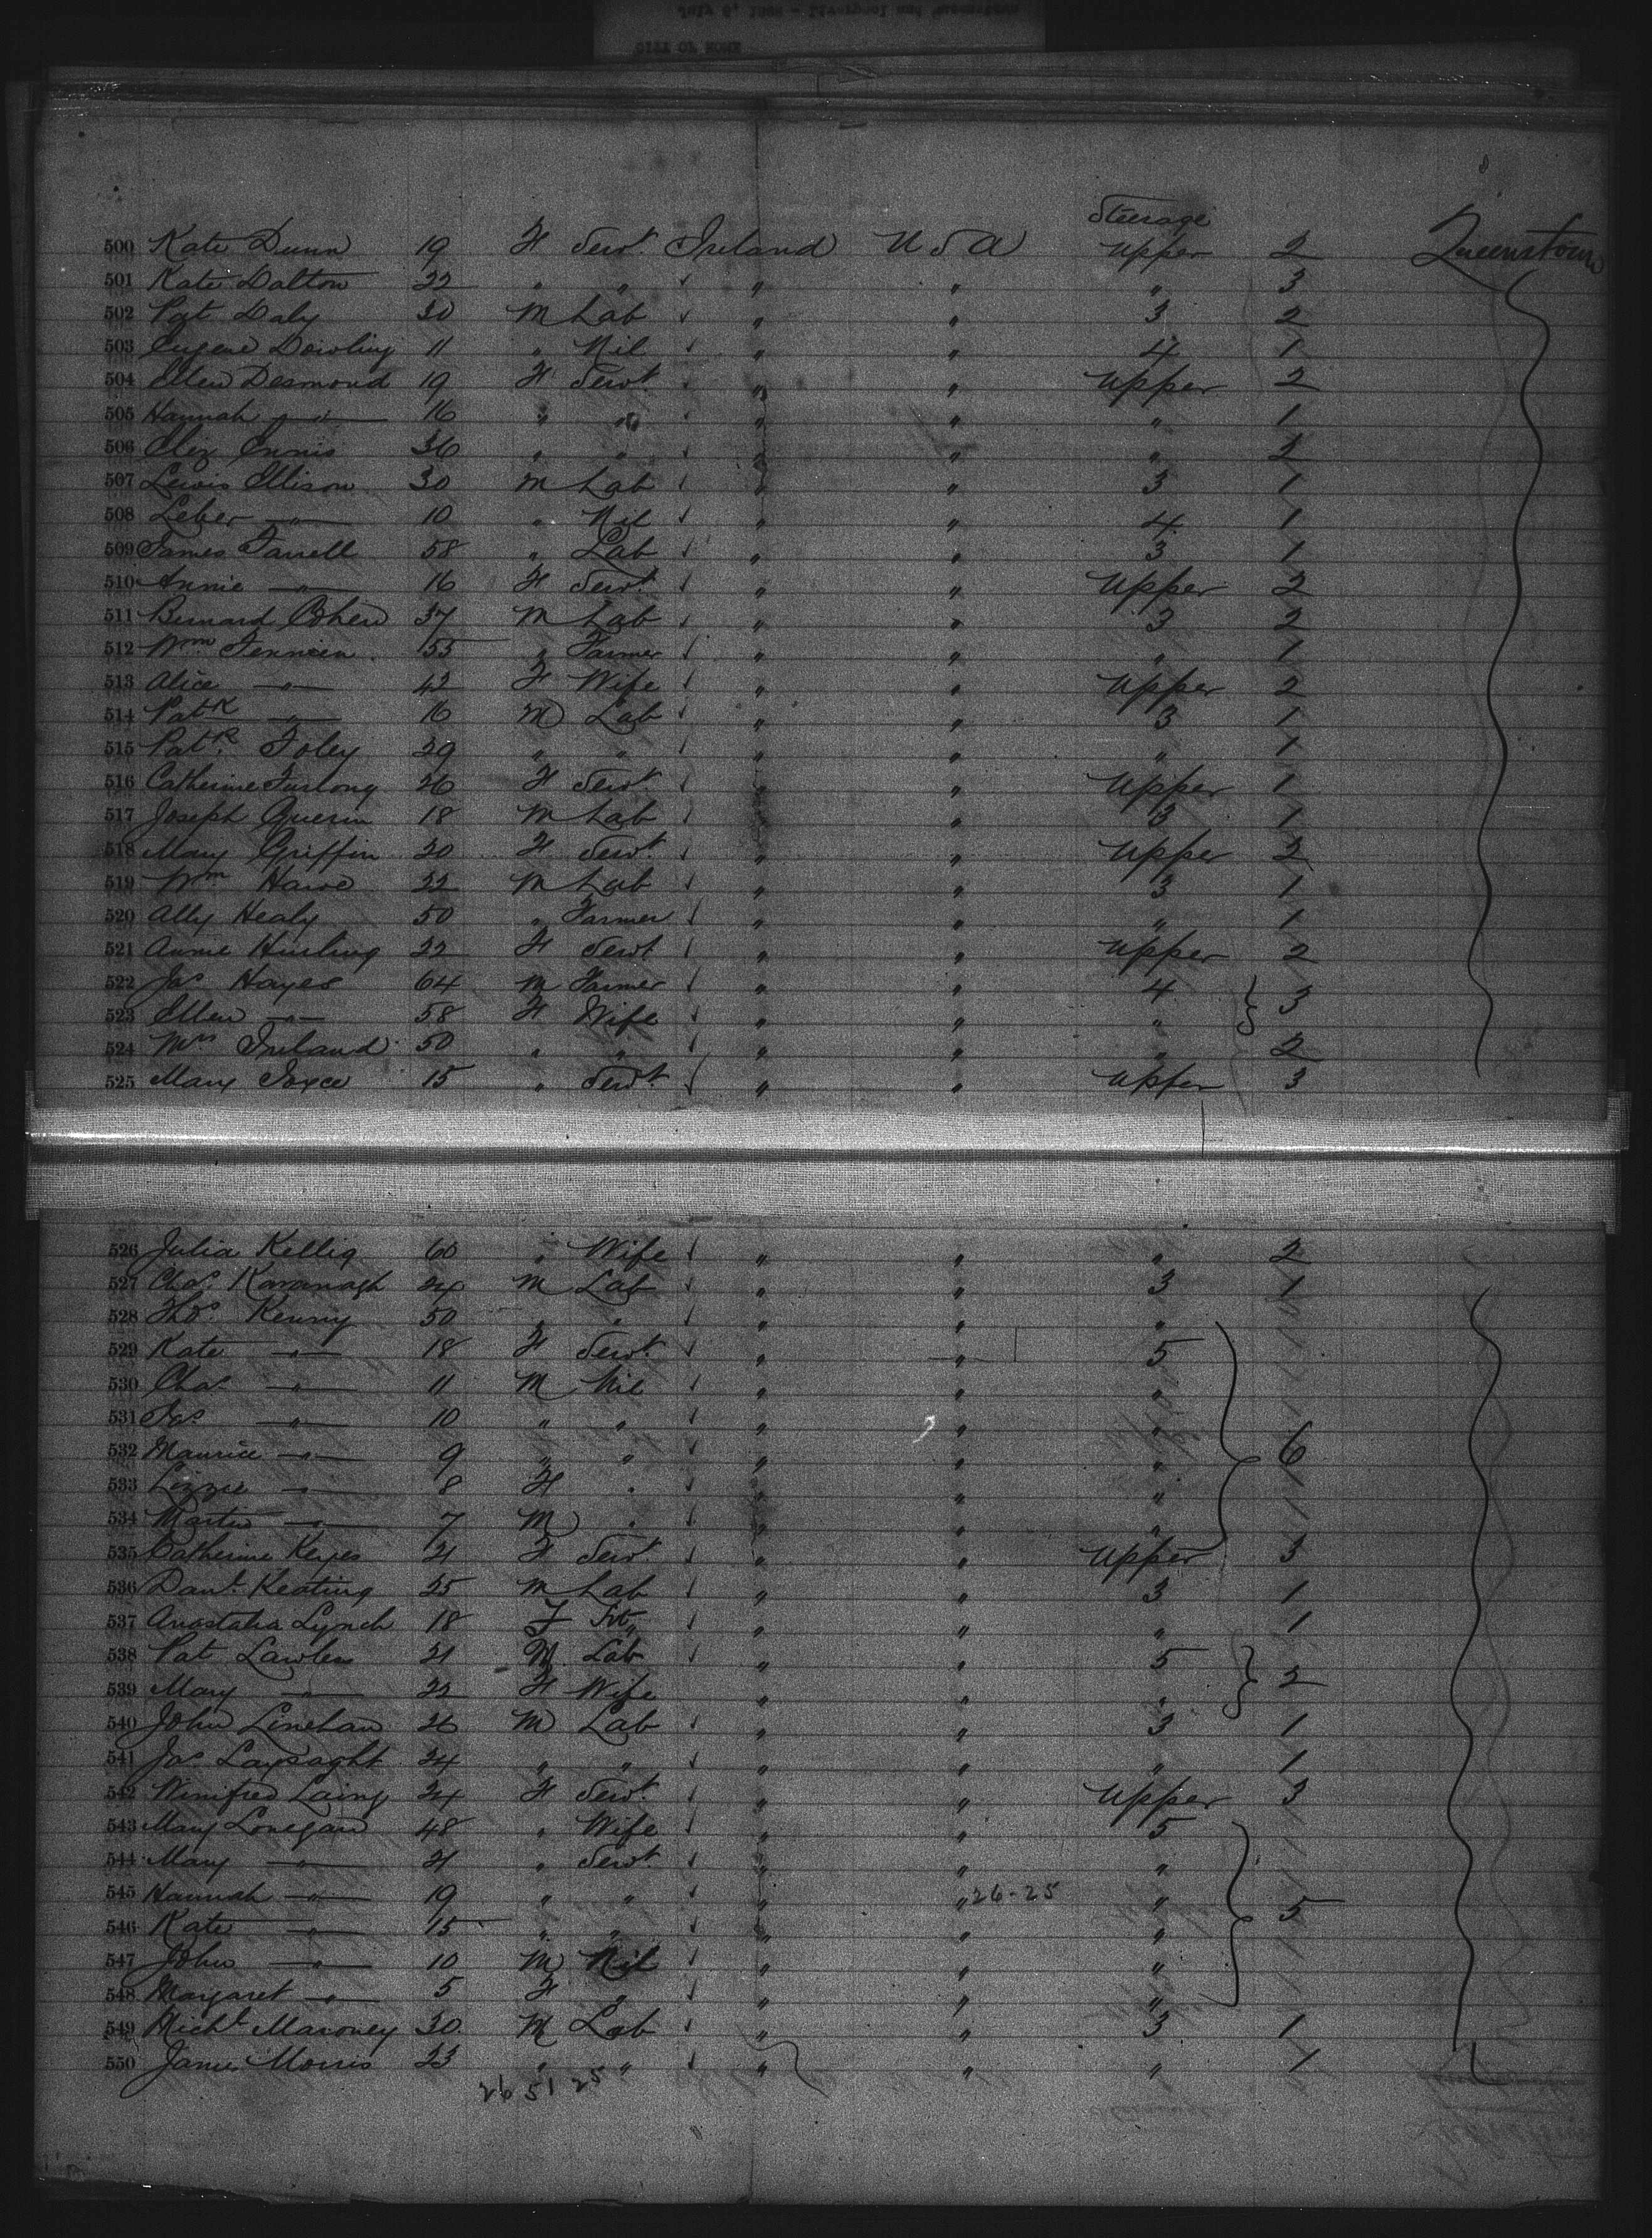 Steerage
500 Kate Dunn 19 F Servt. Ireland U S A Upper 2 Queenstown
501 Kate Dalton 22 " " " " " 3
502 Pat Daly 30 M Lab " " 3 2
503 Eugene Dowling 11 " Nil " " 4 1
504 Ellen Desmond 19 F Servt. " " Upper 2
505 Hannah " 16 " " " " " 1
506 Eliz Ennis 36 " " " " " 2
507 Lewis Ellison 30 M Lab " " 3 1
508 Leber " 10 " Nil " " 4 1
509 James Farrell 58 " Lab " " 3 1
510 Annie " 16 F Servt. " " Upper 2
511 Bernard Cohen 37 M Lab " " 3 2
512 Wm 55 " Farmer " " " 1
513 Alice " 42 F Wife " " Upper 2
514 Patk " 16 M Lab " " 3 1
515 Patk. Foley 29 " " " " " 1
516 Catherine Furlong 26 F Servt. " " Upper 1
517 Joseph Guerin 18 M Lab " " 3 1
518 Mary Griffin 20 F Servt. " " Upper 2
519 Wm 22 M Lab " " 3 1
520 Ally Healy 50 " Farmer " " " 1
521 Annie Hurling 22 F Servt " " Upper 2
522 Jas Hayes 64 M Farmer " " 4 3
523 Ellen " 58 F Wife " " "
524 Mrs Ireland 50 " " " " " 2
525 Mary Joyce 15 " Servt. " " Upper 3
526 Julia Kellig 60 " Wife " " " 2
527 Chas. Kavanagh 24 M Lab " " 3 1
528 Thos. Kenny 50 " " " " "
529 Kate " 18 F Servt. " " 5
530 Chas " 11 M Nil " " "
531 Jas " 10 " " " " "
532 Maurice " 9 " " " " " 6
533 Lizzie " 8 F " " " "
534 Martin " 7 M " " " "
535 Catherine Keyes 21 F Servt. " " Upper 3
536 Danl. Keating 25 M Lab " " 3 1
537 Anastatia Lynch 18 F Svt. " " " 1
538 Pat Lawler 21 M Lab " " 5 2
539 Mary " 22 F Wife " " "
540 John Linehan 26 M Lab " " 3 1
541 Jas Laysaght 24 " " " " " 1
542 Winifred Laing 24 F Servt. " " Upper 3
543 Mary Lonegan 48 " Wife " " 5
544 Mary " 21 " Servt. " " "
545 Hannah " 19 " " " " 26-25 " 5
546 Kate " 15 " " " " "
547 John " 10 M Nil " " "
548 Margaret " 5 F " " " "
549 Michl Maroney 30 M Lab " " 3 1
550 James Morris 23 " " " " " 1
26 51 25